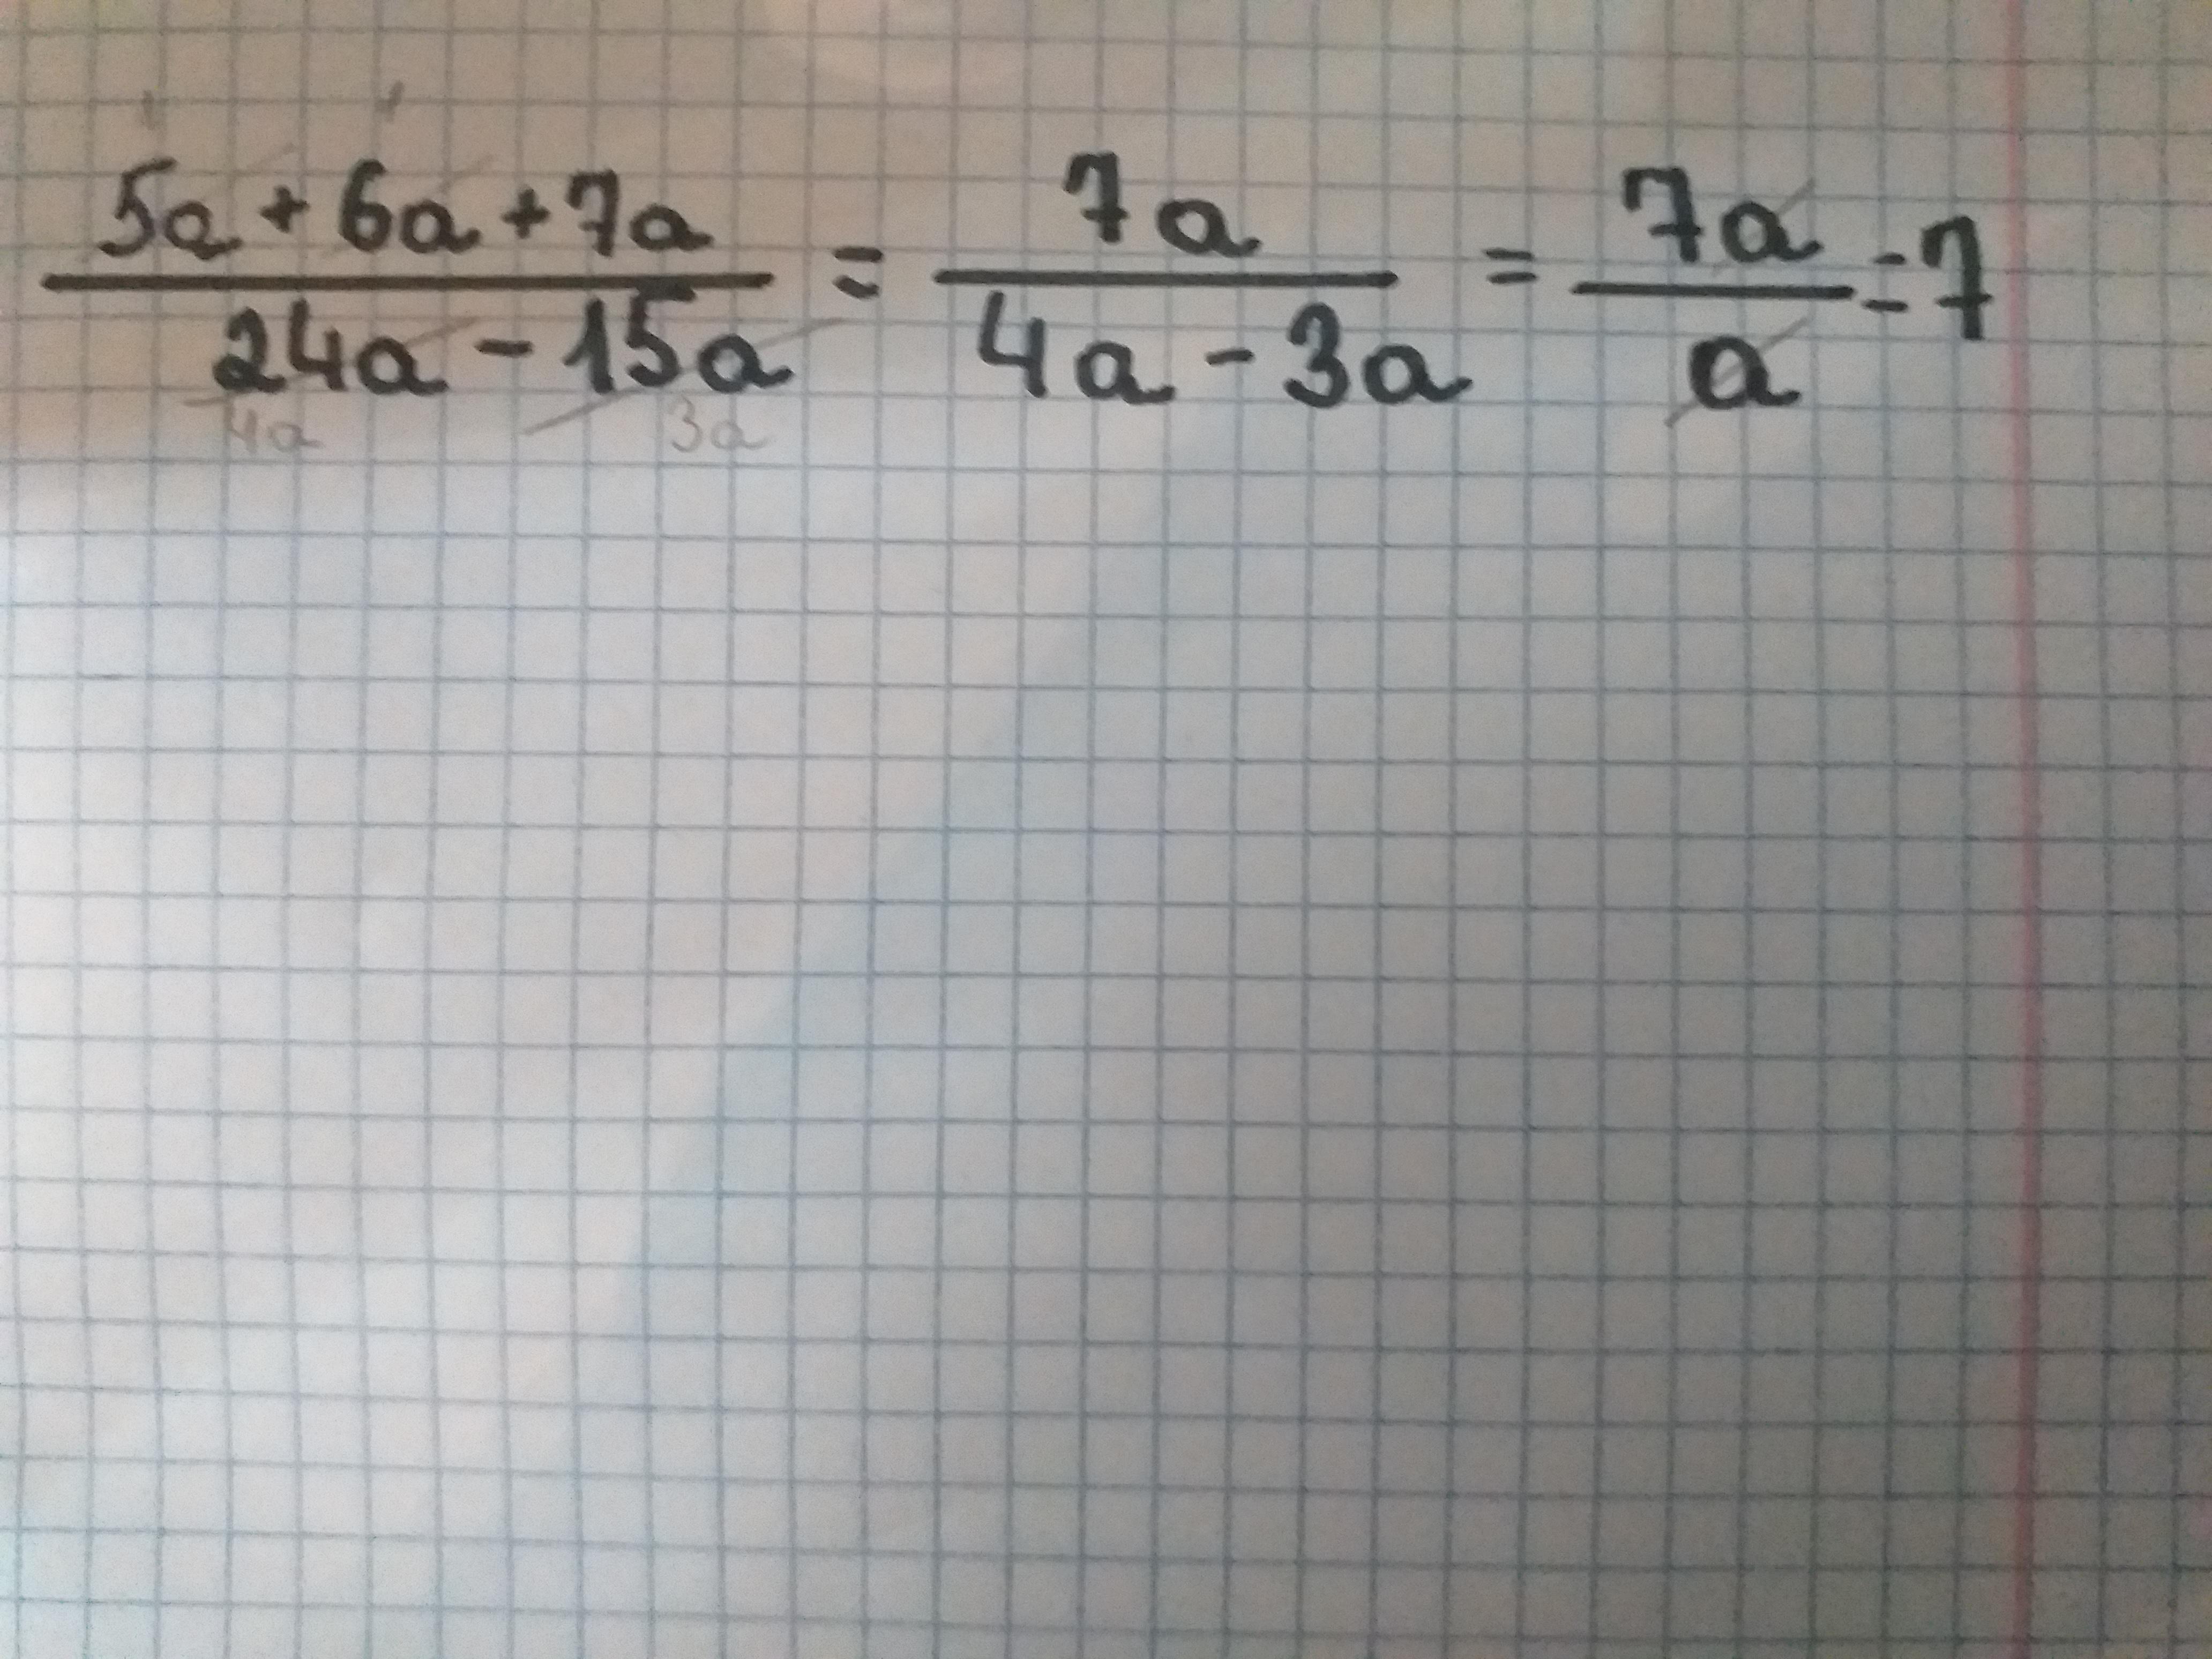 5a + 6a + 7a / 24a - 15a = 7a / 4a - 3a = 7a / a = 7
4a 3a